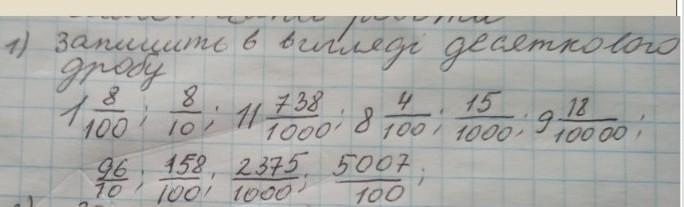 1) Запишить в вигляді десяткового
дробу
1 8/100; 8/10; 11 738/1000; 8 4/100; 15/1000; 9 18/10000;
96/10; 158/100; 2375/1000; 5007/100;